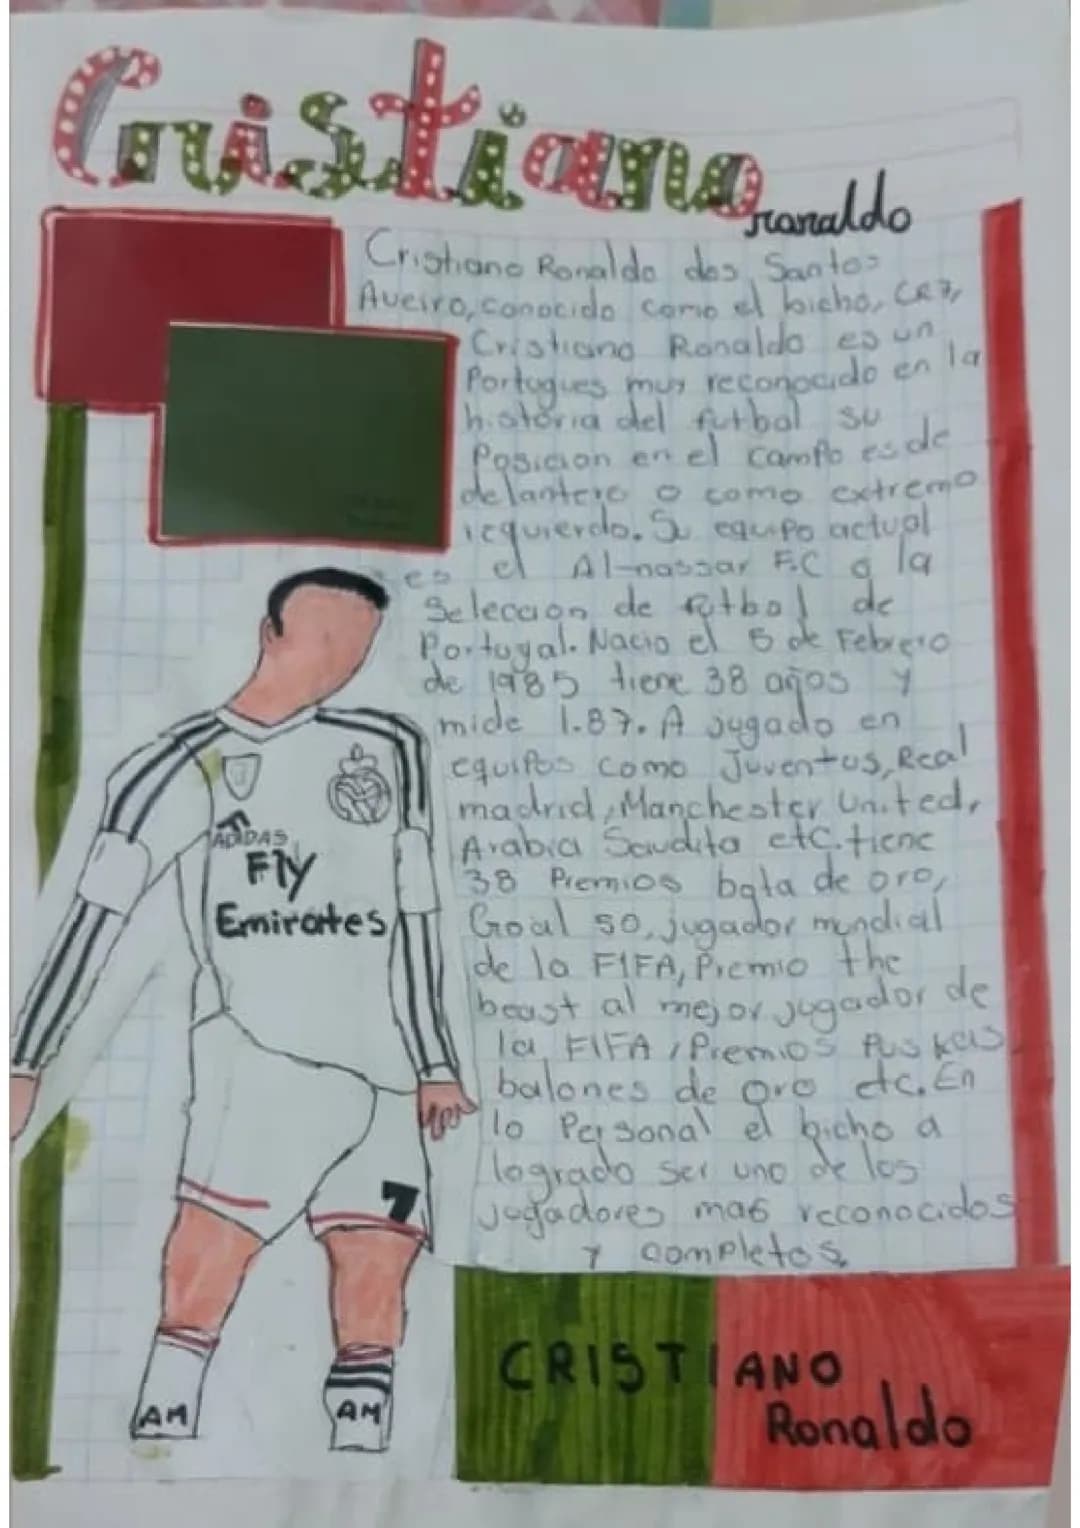 Cristiano
ronaldo
Cristiano Ronaldo dos Santos
Aveiro, conocido como el bicho, CR7,
Cristiano Ronaldo es un
Portugues muy reconocido en la
historia del futbol su
Posicion en el campo es de
delantero o como extremo
izquierdo. Su equipo actual
es el Al-nassar F.C o la
Seleccion de futbol de
Portugal. Nacio el 5 de Febrero
de 1985 tiene 38 años y
mide 1.87. A jugado en
equipos como Juventus, Real
madrid, Manchester United,
Arabia Saudita etc. tiene
38 Premios bota de oro,
Goal 50, jugador mundial
de la FIFA, Premio the
beast al mejor jugador de
la FIFA, Premios Puskas
balones de oro etc. En
lo Personal el bicho a
logrado ser uno de los
jugadores mas reconocidos
y completos.
ADIDAS
Fly
Emirates
7
AM
AM
CRISTIANO
Ronaldo